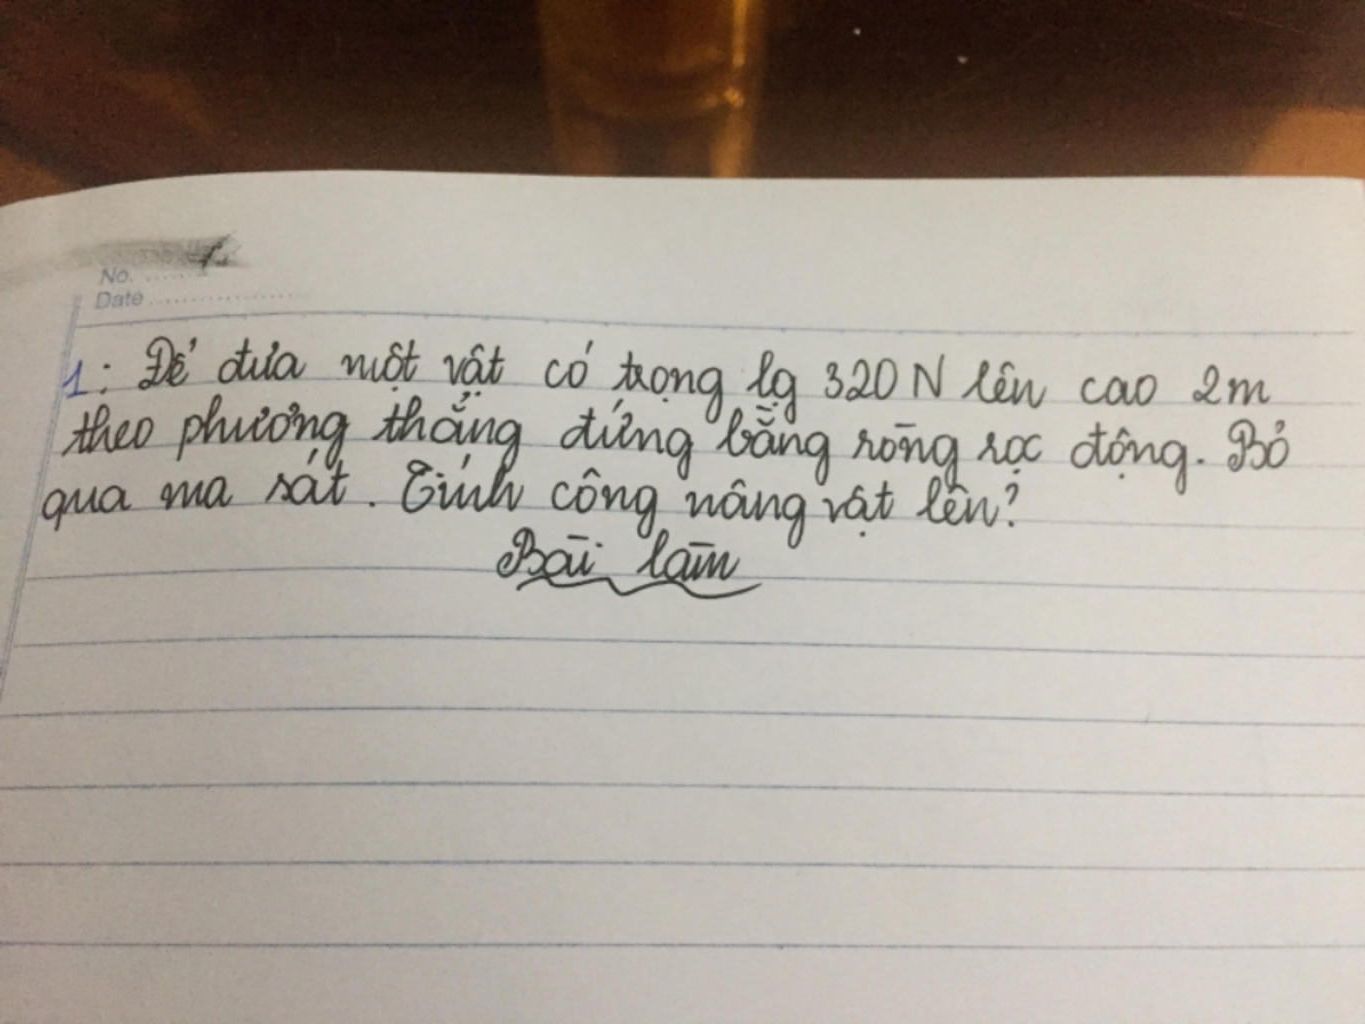 No. ........
Date ....................
1: Để đưa một vật có trọng lg 320 N lên cao 2m
theo phương thẳng đứng bằng ròng rọc động. Bỏ
qua ma sát. Tính công nâng vật lên?
Bài làm